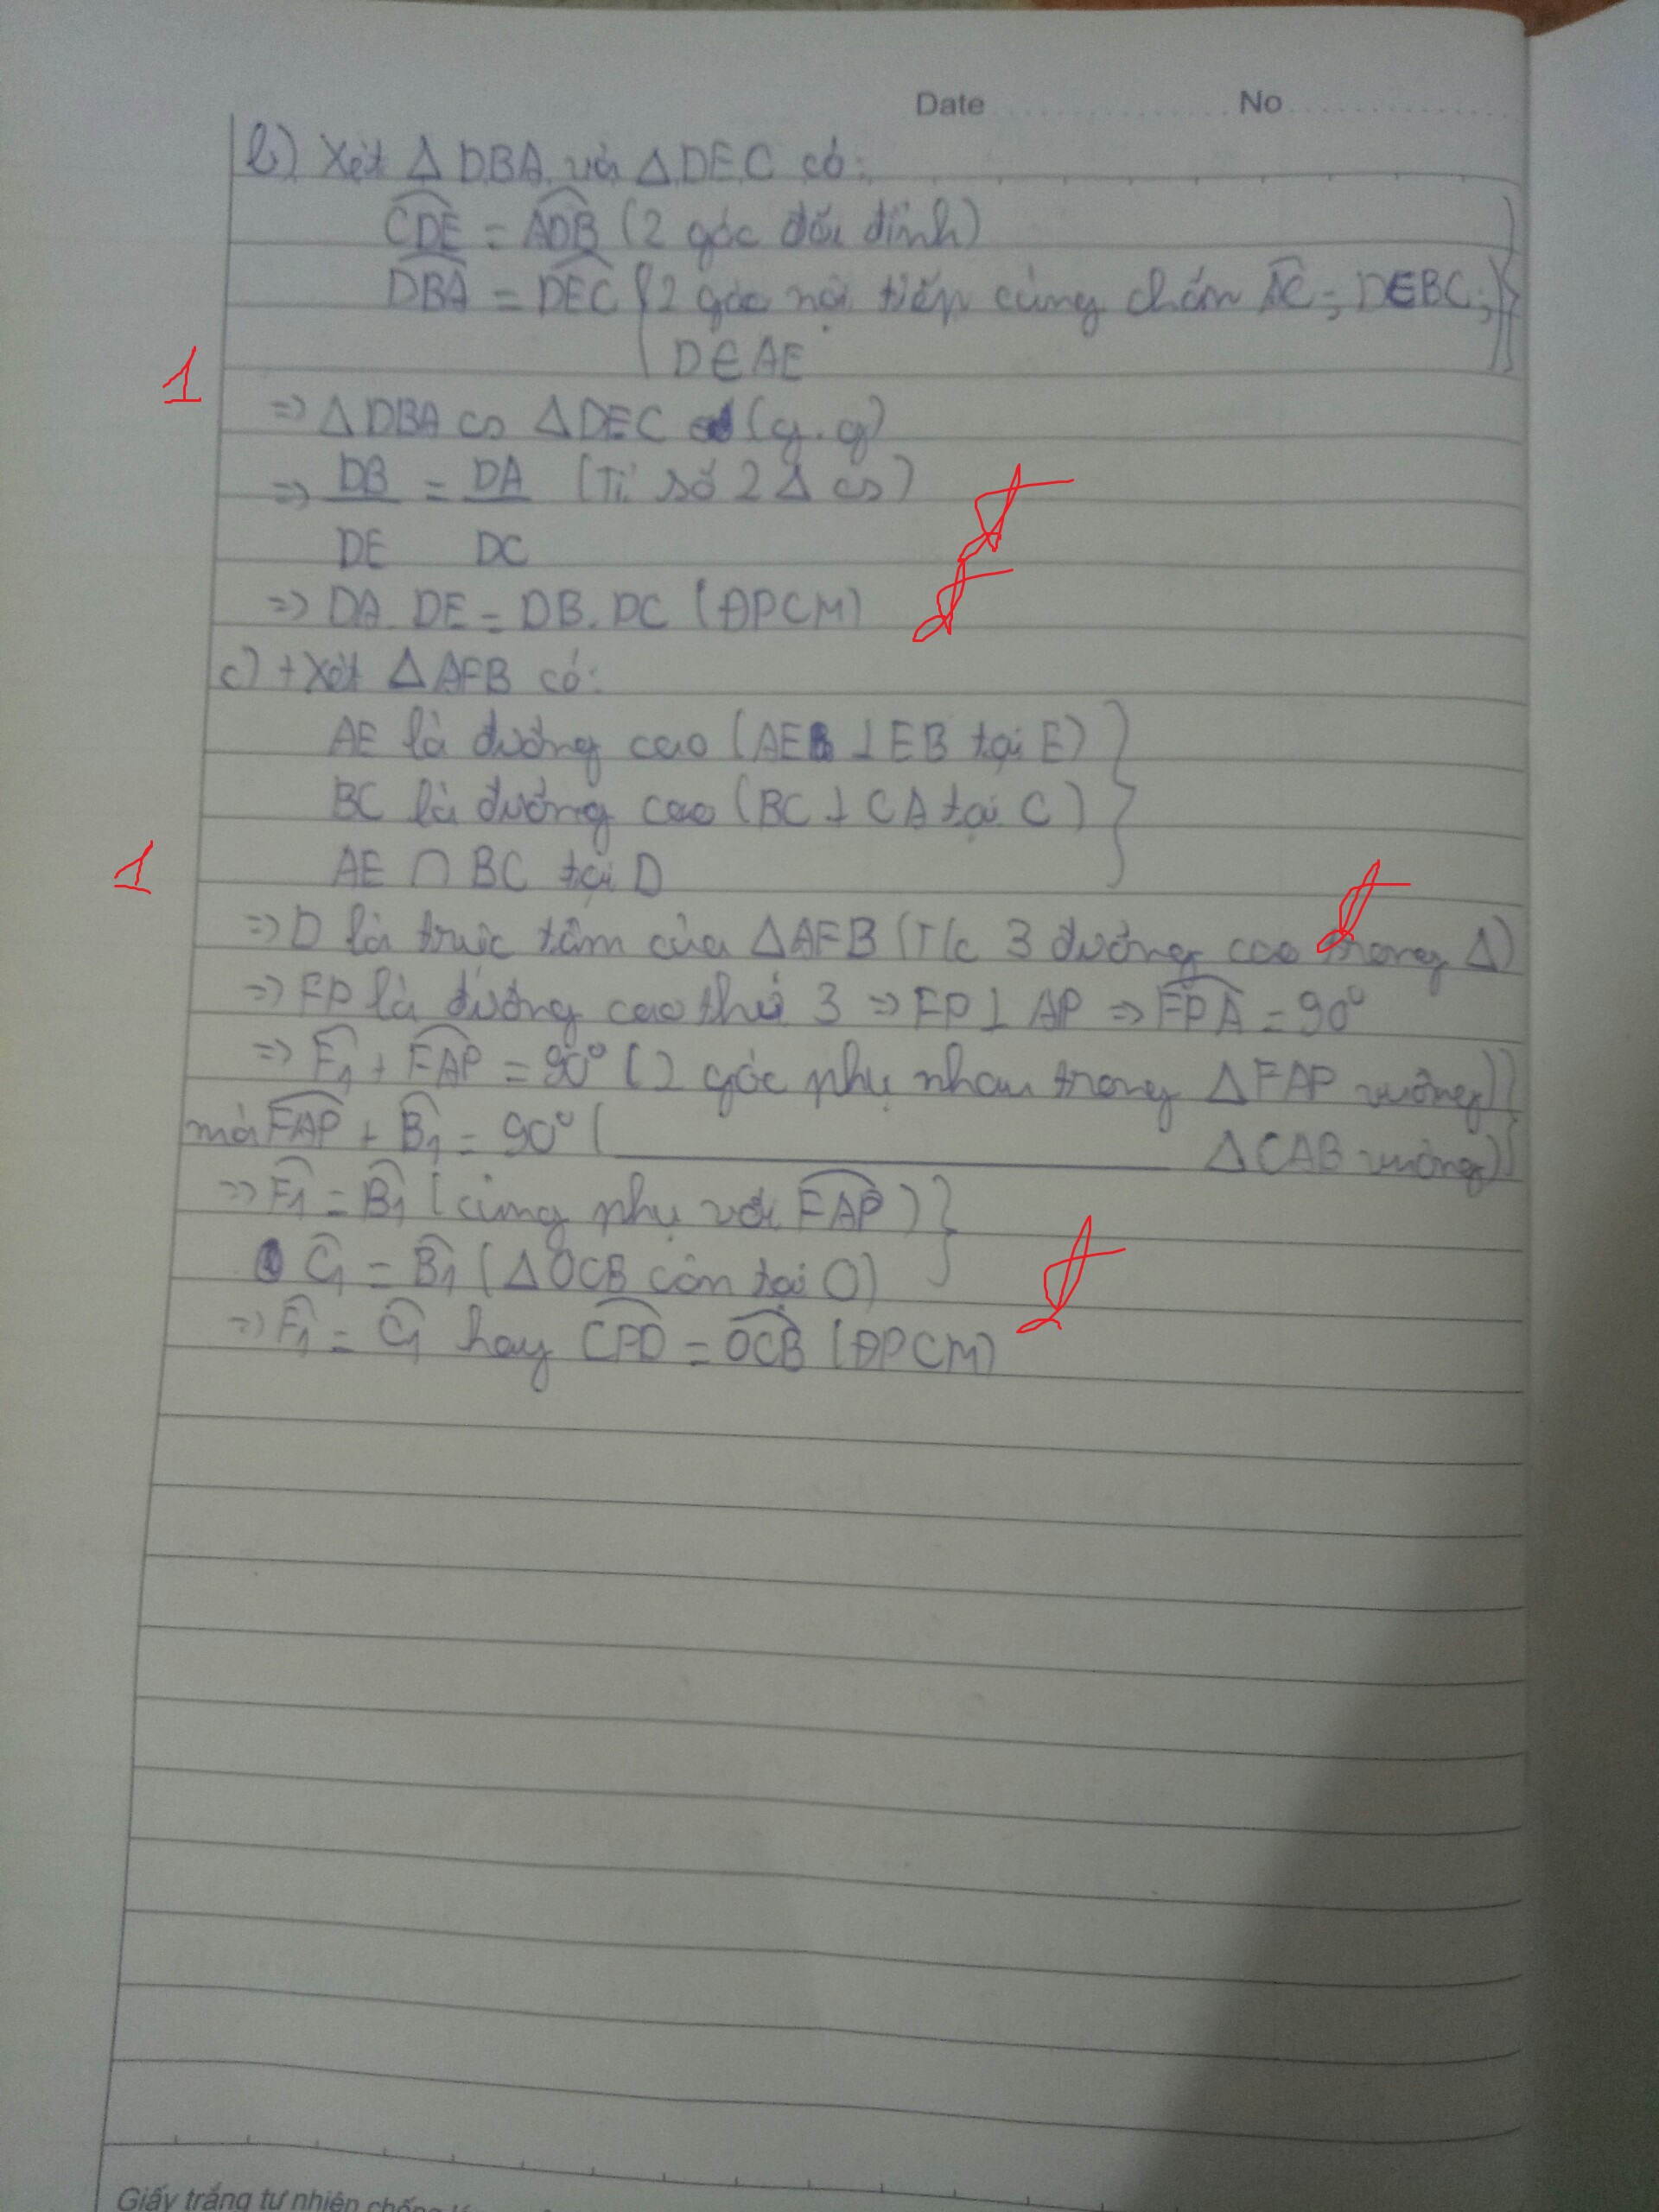 Date No
b) Xét Δ DBA và Δ DEC có:
CDE = ADB (2 góc đối đỉnh)
DBA = DEC (2 góc nội tiếp cùng chắn AC; D∈BC;
D∈AE
1
=> ΔDBA ∽ ΔDEC (g.g)
=> DB/DE = DA/DC (Tỉ số 2 Δ ∽)
=> DA.DE = DB.DC (ĐPCM)
c) + Xét ΔAFB có:
AE là đường cao (AE ⊥ EB tại E)
BC là đường cao (BC ⊥ CA tại C)
1
AE ∩ BC tại D
=> D là trực tâm của ΔAFB (T/c 3 đường cao trong Δ)
=> FP là đường cao thứ 3 => FP ⊥ AP => FPA = 90°
=> F1 + FAP = 90° (2 góc phụ nhau trong ΔFAP vuông)
mà FAP + B1 = 90° ( ΔCAB vuông)
=> F1 = B1 (cùng phụ với FAP)
C1 = B1 (ΔOCB cân tại O)
=> F1 = C1 hay CFD = OCB (ĐPCM)
Giấy trắng tự nhiên chống